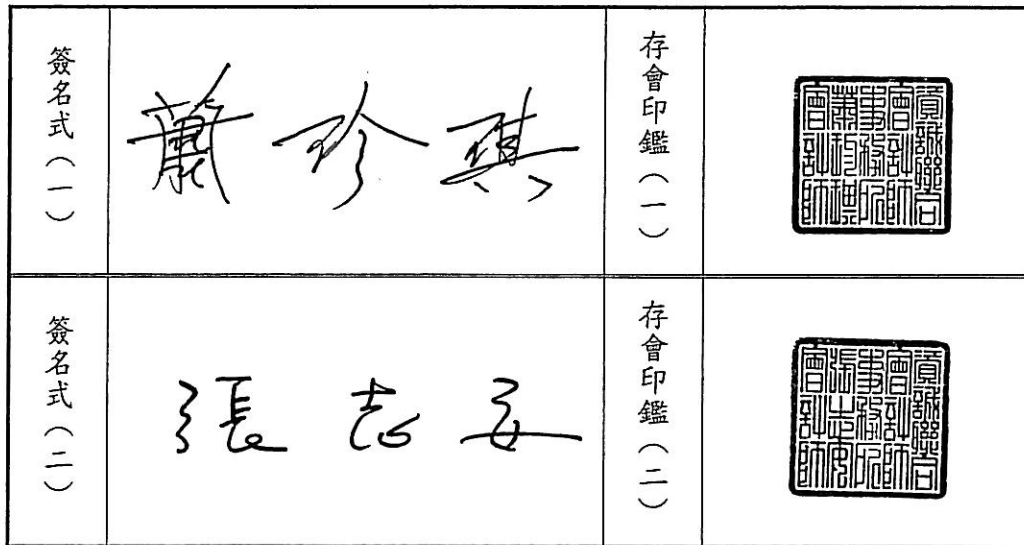 簽名式（一）
蕭珍琪
存會印鑑（一）
資誠聯合
會計師
事務所
蕭珍琪
會計師
簽名式（二）
張志安
存會印鑑（二）
資誠聯合
會計師
事務所
張志安
會計師